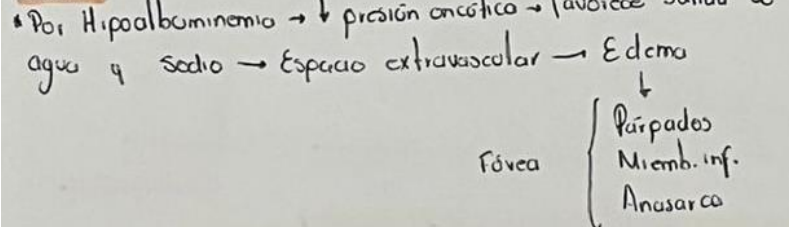 • Por Hipoalbuminemia → ↓ presión oncótica → favorece salida de
agua y sodio → Espacio extravascular → Edema
↓
Párpados
Fóvea { Miemb. inf.
Anasarca